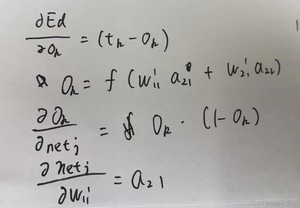 ∂Ed/∂Ok = (tk - Ok)
Ok = f (w11' a21 + w21' a22)
∂Ok/∂netj = Ok · (1-Ok)
∂netj/∂w11' = a21